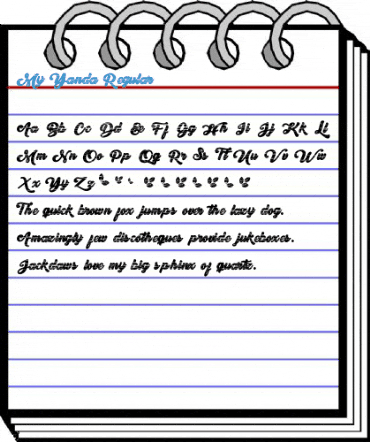 My Yanda Regular
Aa Bb Cc Dd Ee Ff Gg Hh Ii Jj Kk Ll
Mm Nn Oo Pp Qq Rr Ss Tt Uu Vv Ww
Xx Yy Zz
The quick brown fox jumps over the lazy dog.
Amazingly few discotheques provide jukeboxes.
Jackdaws love my big sphinx of quartz.